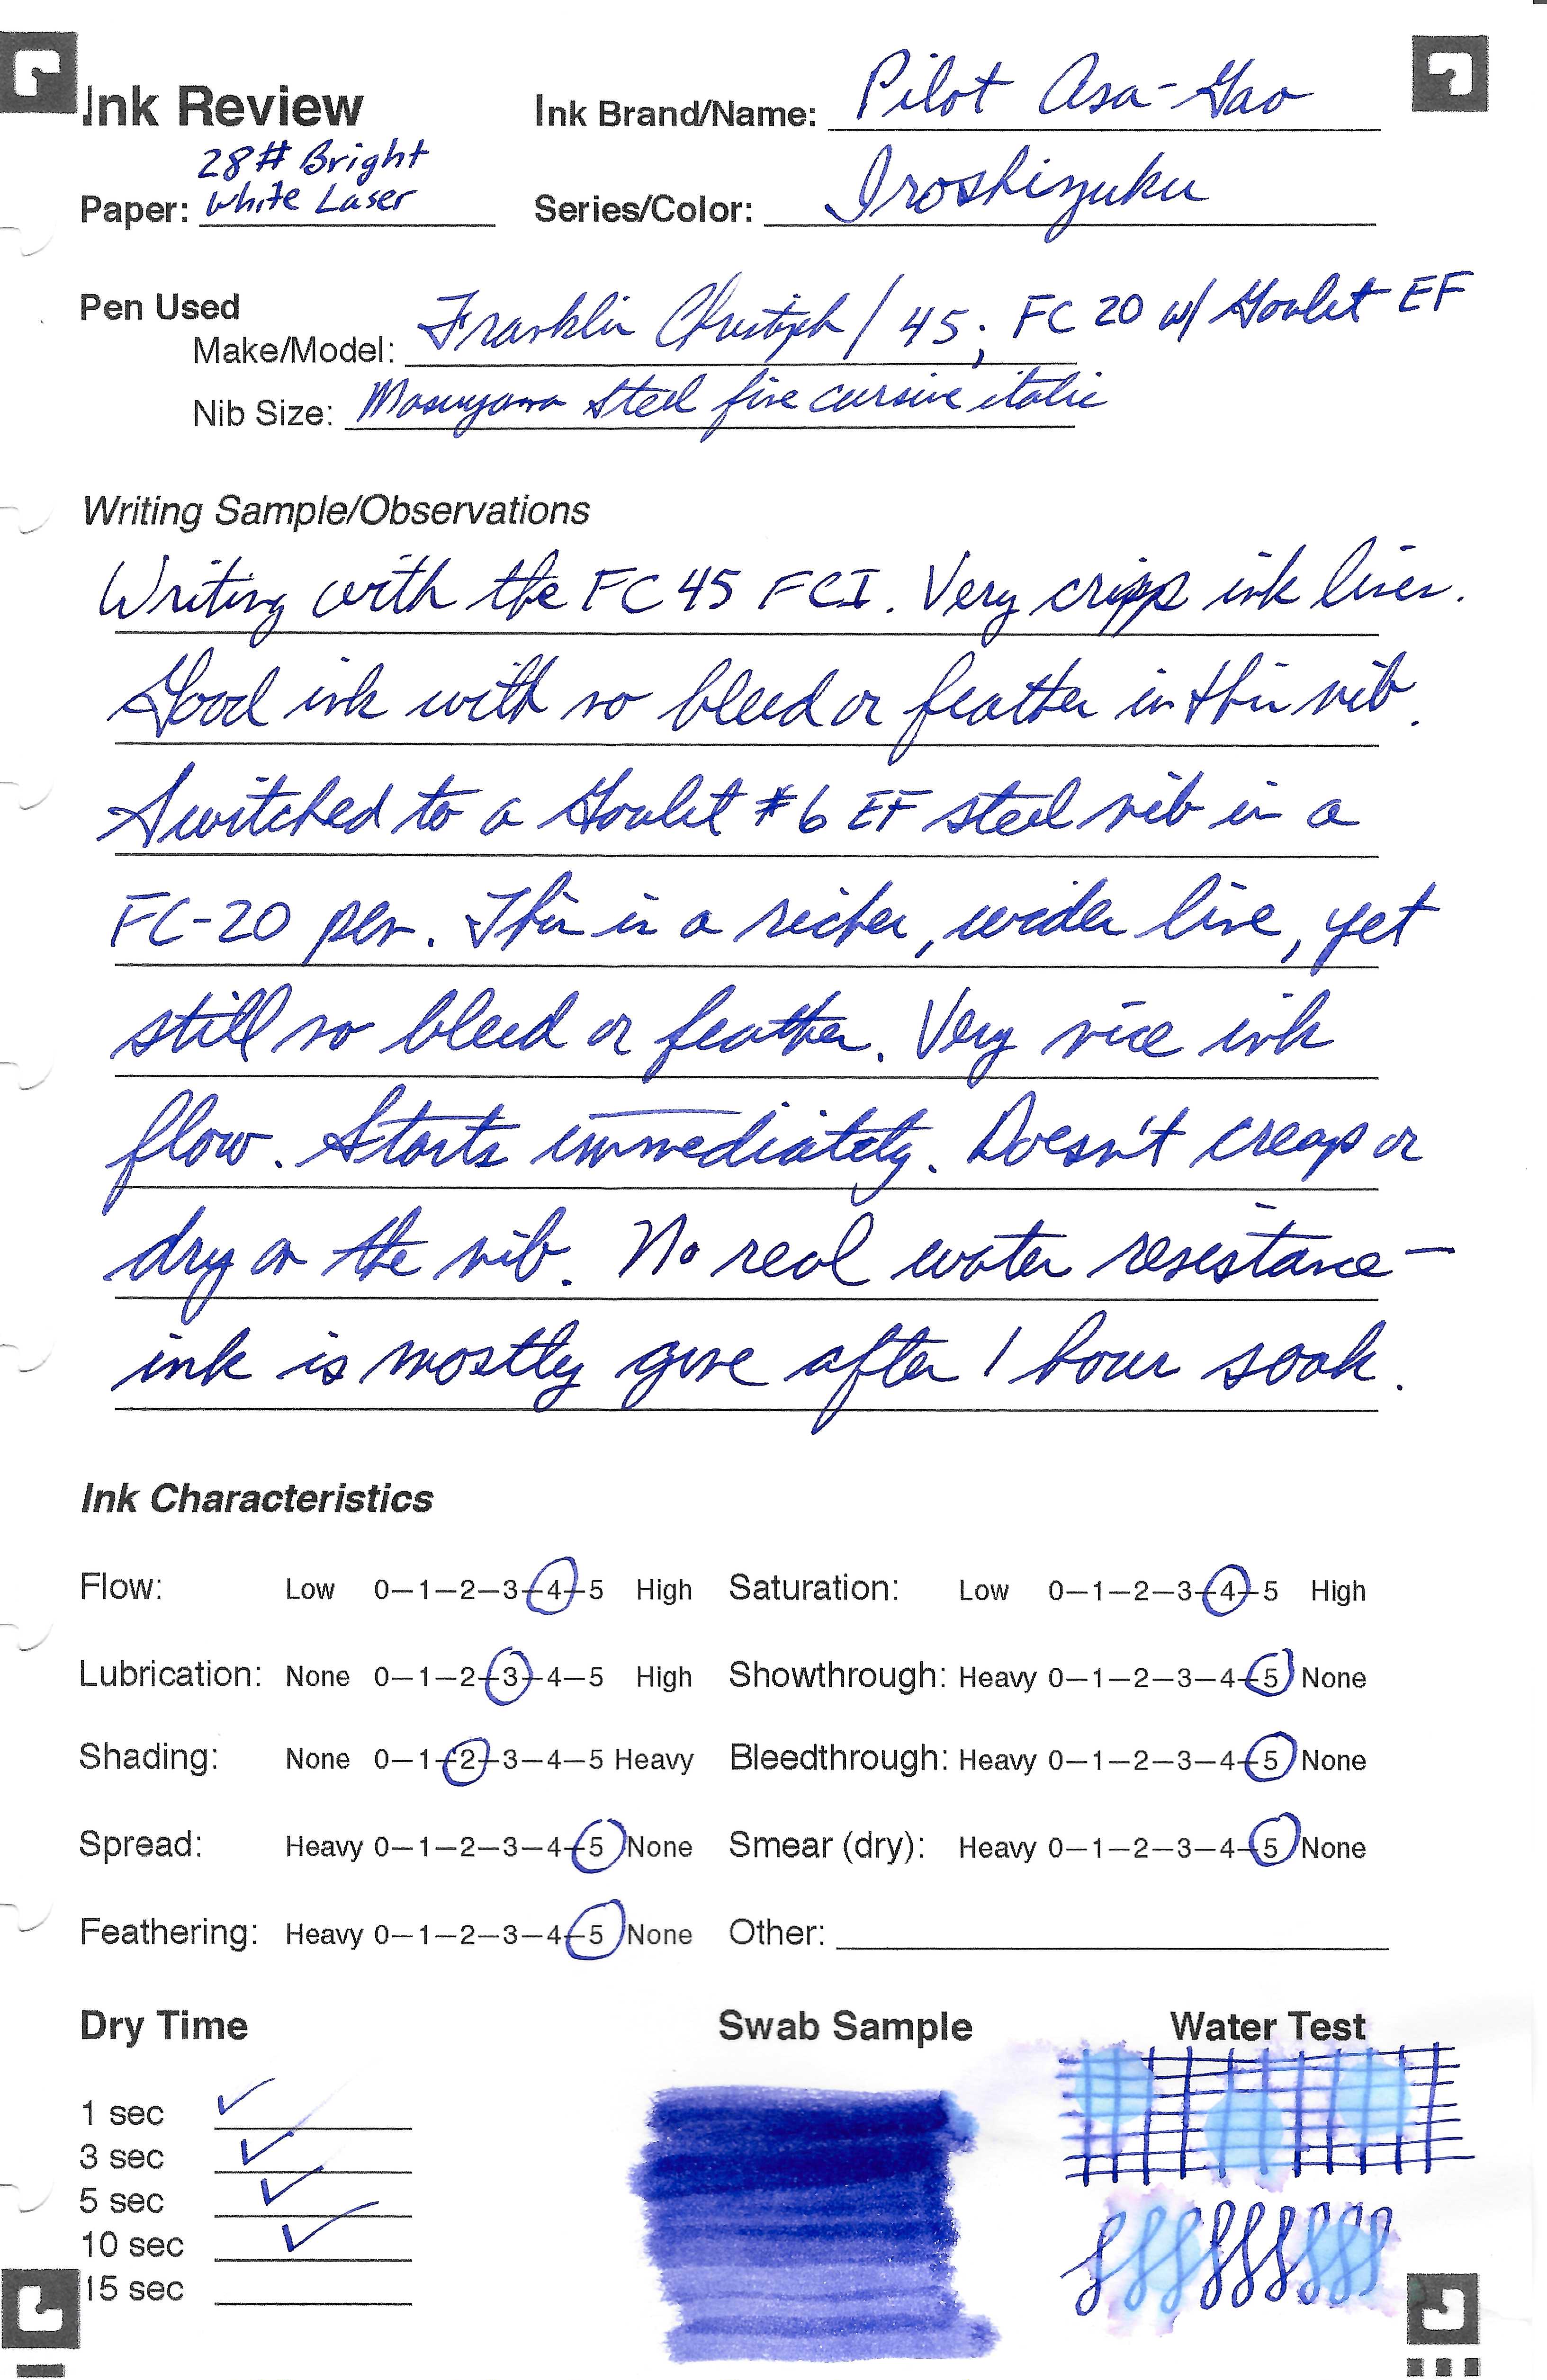 Ink Review Ink Brand/Name: Pilot Asa-Gao
28# Bright
Paper: White Laser Series/Color: Iroshizuku
Pen Used
Make/Model: Franklin Christoph / 45; FC 20 w/ Goulet EF
Nib Size: Masuyama Steel fine cursive italic
Writing Sample/Observations
Writing with the FC 45 FCI. Very crisp ink lines.
Good ink with no bleed or feather in this nib.
Switched to a Goulet #6 EF steel nib in a
FC-20 pen. This is a richer, wider line, yet
still no bleed or feather. Very nice ink
flow. Starts immediately. Doesn't creap or
dry on the nib. No real water resistance—
ink is mostly gone after 1 hour soak.
Ink Characteristics
Flow: Low 0–1–2–3–4–5 High Saturation: Low 0–1–2–3–4–5 High
Lubrication: None 0–1–2–3–4–5 High Showthrough: Heavy 0–1–2–3–4–5 None
Shading: None 0–1–2–3–4–5 Heavy Bleedthrough: Heavy 0–1–2–3–4–5 None
Spread: Heavy 0–1–2–3–4–5 None Smear (dry): Heavy 0–1–2–3–4–5 None
Feathering: Heavy 0–1–2–3–4–5 None Other:
Dry Time Swab Sample Water Test
1 sec ✓
3 sec ✓
5 sec ✓
10 sec ✓
15 sec